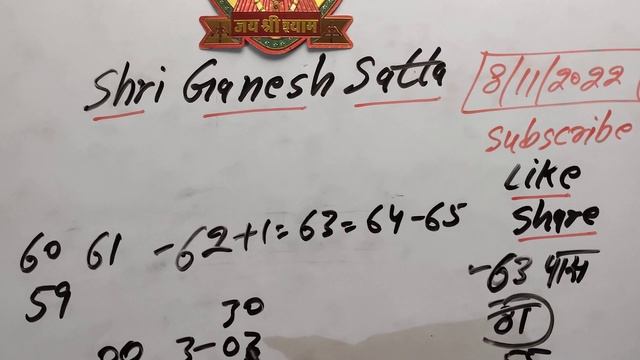 जय श्री श्याम
Shri Ganesh Satta
8/11/2022
Subscribe
Like
Share
60 61 -62+1=63=64-65
59
-63 पास
30